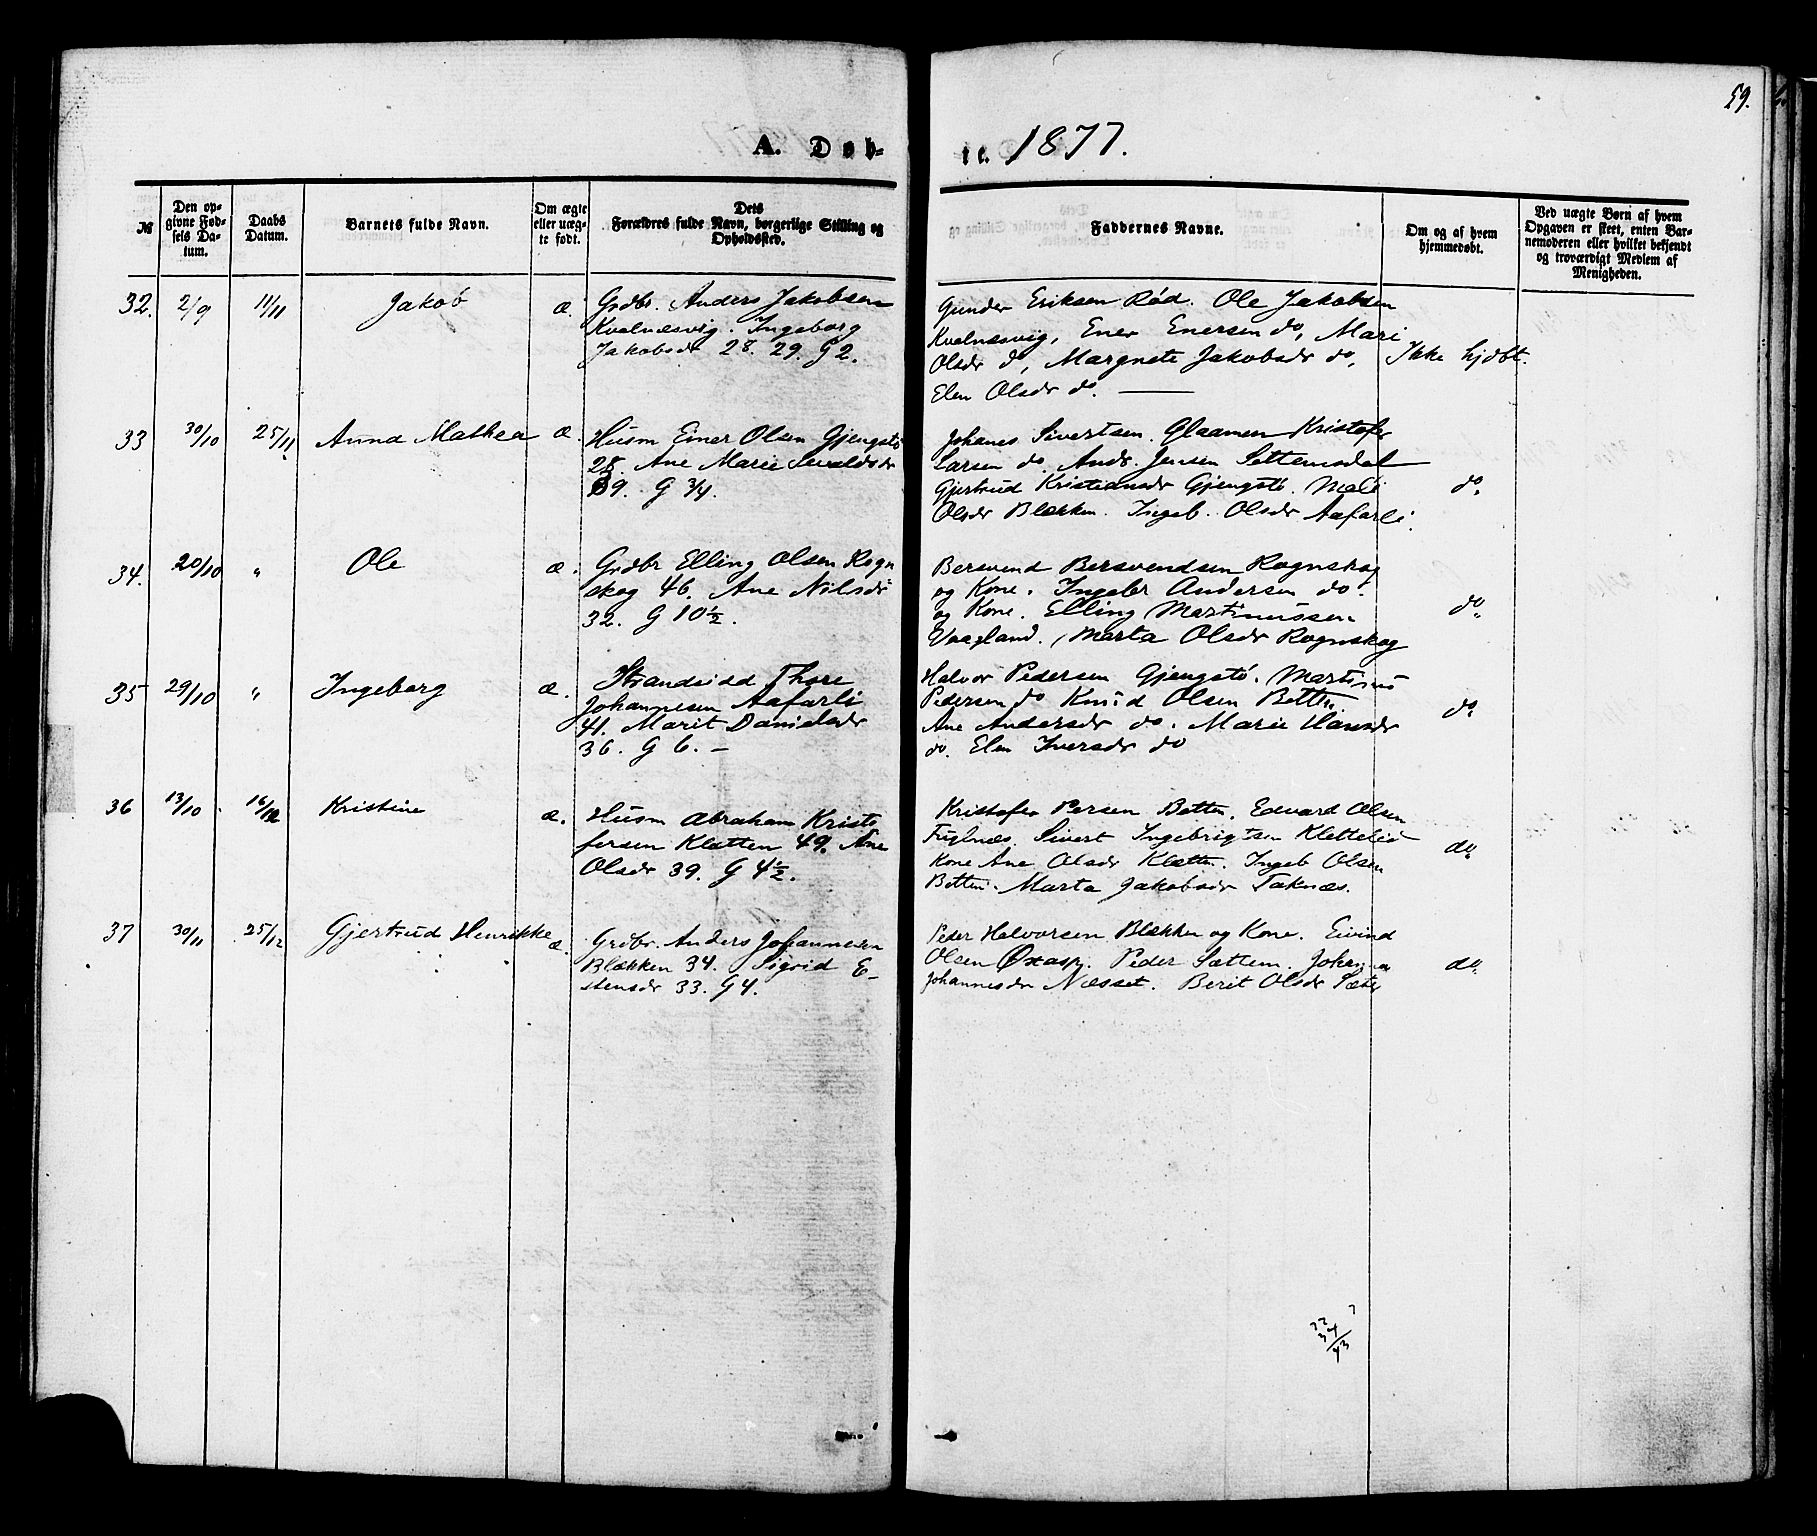 59.
A. Døb-
te. 1877.
№
Den op-
givne Fød-
sels Da-
tum.
Daabs
Datum.
Barnets fulde Navn.
Om ægte
eller uæg-
te født.
Dets
Forældres fulde Navn, borgerlige Stilling og
Opholdssted.
Faddernes Navne.
Om og af hvem
hjemmedøbt.
Ved uægte Børn af hvem
Opgaven er skeet, enten Bar-
nemoderen eller hvilket bekjendt
og troværdigt Medlem af
Menigheden.
32. 2/9 11/11 Jakob æ.
Grdbr. Anders Jakobsen
Kvalnæsvig. Ingeborg
Jakobsdr 28. 29. G 2.
Gunder Eriksen Rød. Ole Jakobsen
Kvalnæsvig, Ener Enersen do, Mari
Olsdr do, Margrete Jakobsdr do,
Elen Olsdr do.
Ikke hjdbt.
33 30/10 25/11 Anna Mathea æ.
Husm Einer Olsen Gjengstø
28. Ane Marie Sivaldsdr
39. G 3/4.
Johanes Sivertsen. Glaamen Kristofer
Larsen do. Ands. Jensen Settemsdal
Gjertrud Kristiansdr Gjengstø. Mali
Olsdr Blekken. Ingeb. Olsdr Aafarli.
do.
34. 20/10 " Ole æ.
Grdbr Elling Olsen Rogn
skog 46. Ane Nilsdr
32. G 10½.
Bersvend Bersvendsen Rognskog
og Kone. Ingebr Andersen do.
og Kone. Elling Martinussen
Vaagland. Marta Olsdr Rognskog
do.
35 29/10 " Ingeborg æ.
Strandsidd Thore
Johannesen Aafarli
41. Marit Danielsdr
36. G 6. –
Halvor Pedersen Gjengstø. Martinus
Pedersen do Knud Olsen Betten
Ane Andersdr do. Marie Hansdr
do. Elen Iversdr do
do.
36 13/10 16/12 Kristine æ.
Husm Abraham Kristo
fersen Kletten 49. Ane
Olsdr 39. G 4½.
Kristofer Persen Betten. Edvard Olsen
Fuglnæs. Sivert Ingebrigtsen Klettelid
Kone Ane Olsdr Kletten. Ingeb Olsen
Betten. Marta Jakobsdr Taknæs.
do.
37 30/11 25/12 Gjertrud Henrikke æ.
Grdbr. Anders Johannesen
Blekken 34. Sigrid E-
stensdr 33. G 4.
Peder Halvorsen Blekken og Kone. Eivind
Olsen Øxasp. Peder Sættem. Johanna
Johannesdr Næsset. Berit Olsdr Sæter
do.